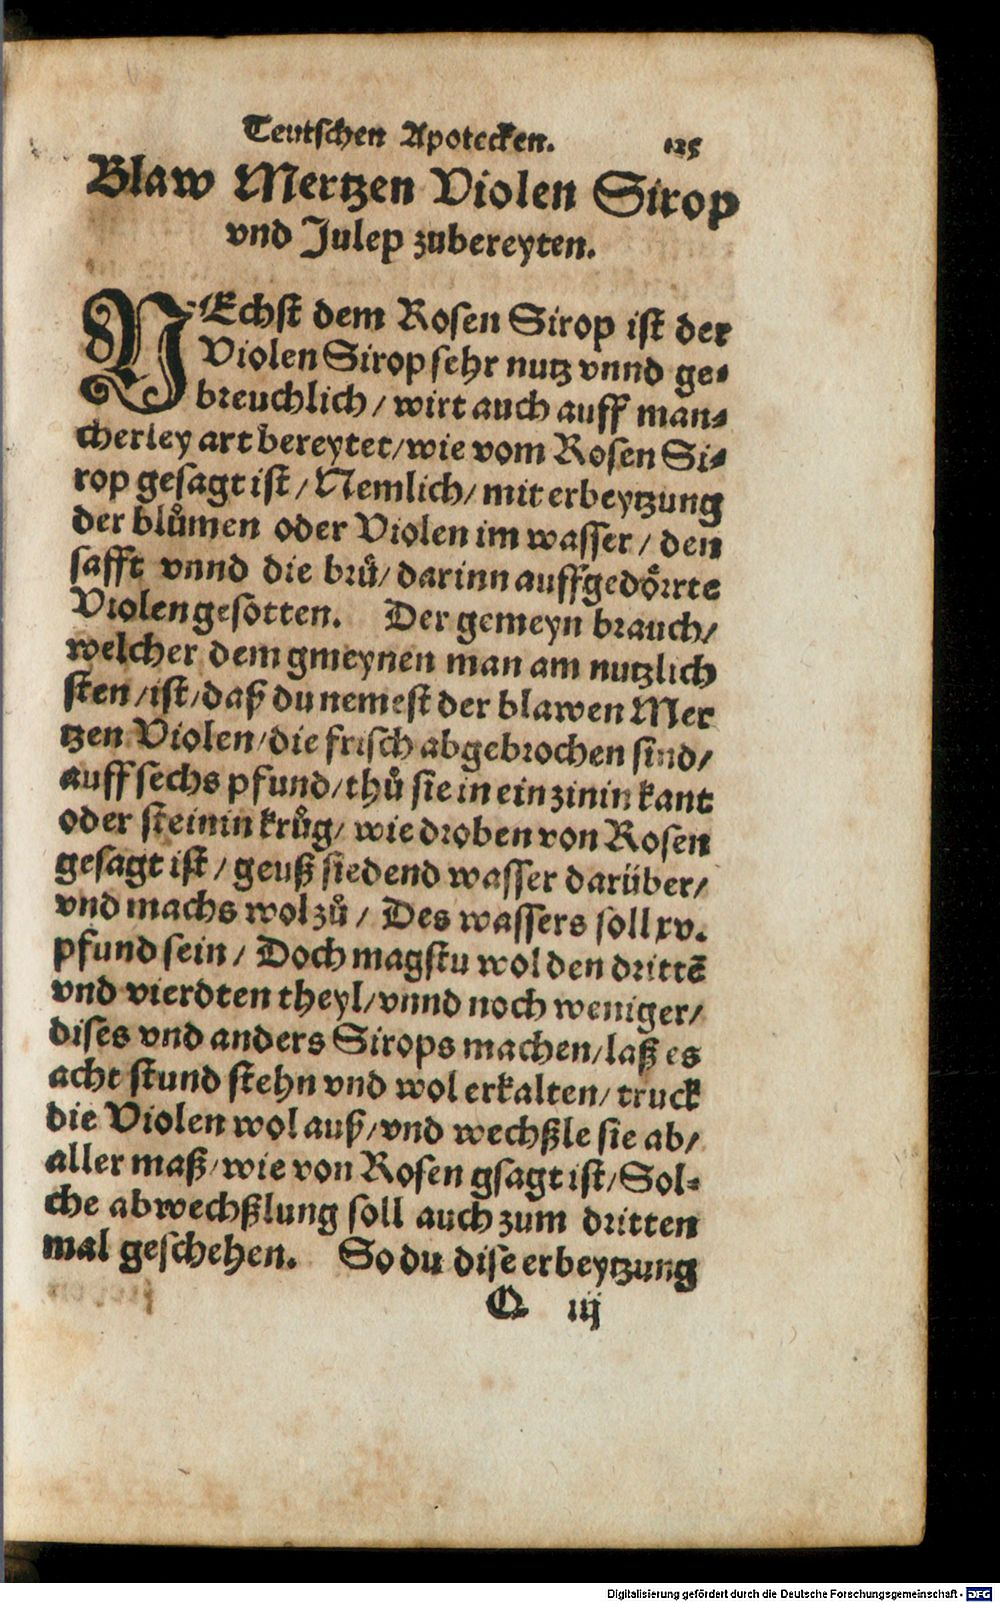 Teutschen Apotecken. 125
Blaw Mertzen Violen Sirop
vnd Julep zubereyten.
NEchst dem Rosen Sirop ist der
Violen Sirop sehr nutz vnnd ge⸗
breuchlich / wirt auch auff man⸗
cherley art bereytet / wie vom Rosen Si⸗
rop gesagt ist / Nemlich / mit erbeytzung
der blůmen oder Violen im wasser / den
safft vnnd die brů / darinn auffgedörrte
Violen gesotten. Der gemeyn brauch /
welcher dem gmeynen man am nutzlich
sten / ist / daß du nemest der blawen Mer
tzen Violen / die frisch abgebrochen sind /
auff sechs pfund / thů sie in ein zinin kant
oder steinin krůg / wie droben von Rosen
gesagt ist / geuß siedend wasser darüber /
vnd machs wol zů / Des wassers soll xv.
pfund sein / Doch magstu wol den drittē
vnd vierdten theyl / vnnd noch weniger /
dises vnd anders Sirops machen / laß es
acht stund stehn vnd wol erkalten / truck
die Violen wol auß / vnd wechßle sie ab /
aller maß / wie von Rosen gsagt ist / Sol⸗
che abwechßlung soll auch zum dritten
mal geschehen. So du dise erbeytzung
Q iij
Digitalisierung gefördert durch die Deutsche Forschungsgemeinschaft - DFG